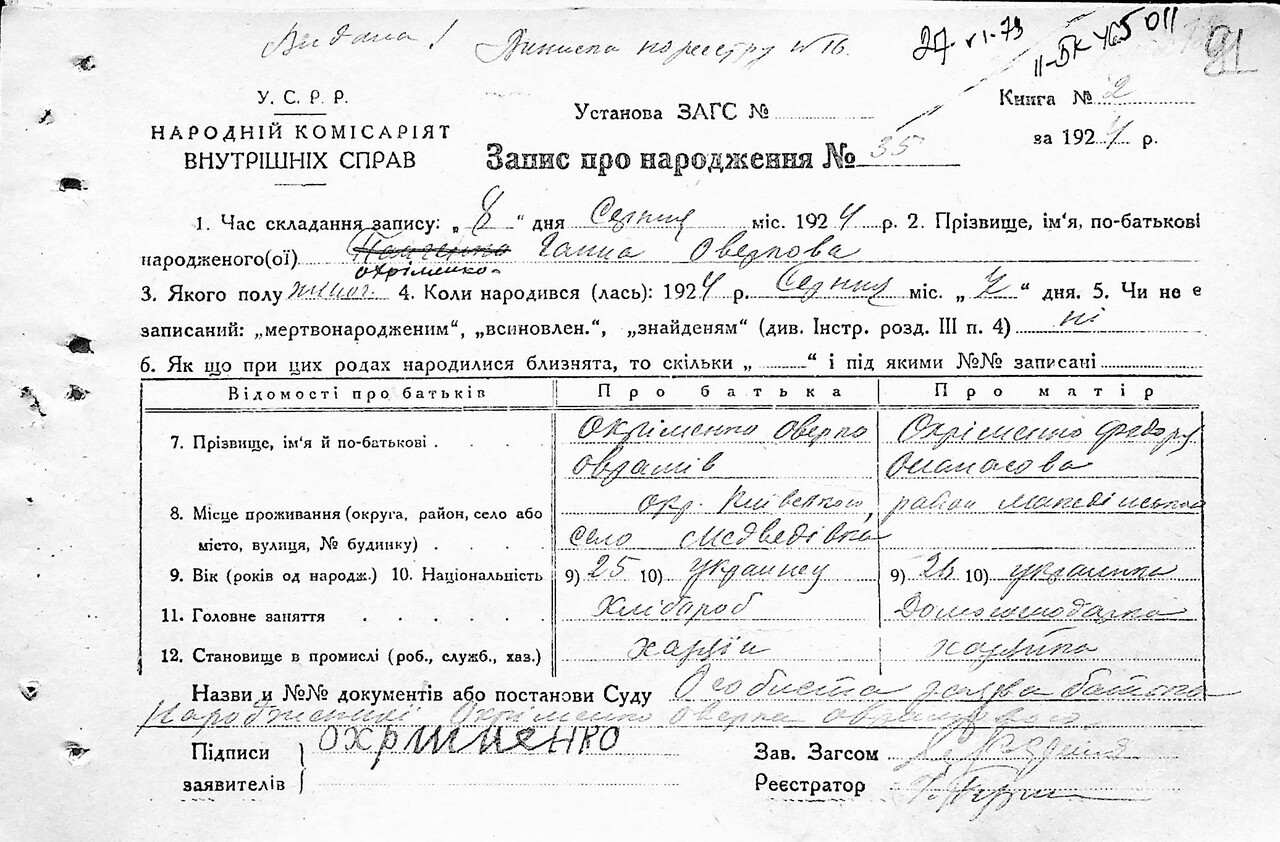 Видана! Виписка по реєстру №16.
27.VI.73
II-БК 465011
91
У. С. Р. Р.
НАРОДНІЙ КОМІСАРІЯТ
ВНУТРІШНІХ СПРАВ
Установа ЗАГС №
Запис про народження № 35
Книга № 2
за 1924 р.
1. Час складання запису: „ 8 “ дня Серпня міс. 1924 р. 2. Прізвище, ім'я, по-батькові
народженого(ої) Ганна Оверкова
Охріменко
3. Якого полу жіноч. 4. Коли народився (лась): 1924 р. Серпня міс. „ 4 “ дня. 5. Чи не є
записаний: „мертвонародженим“, „всиновлен.“, „знайденям“ (див. Інстр. розд. III п. 4) ні
6. Як що при цих родах народилися близнята, то скільки „ “ і під якими №№ записані
Відомості про батьків Про батька Про матір
7. Прізвище, ім'я й по-батькові . . . . Охріменко Оверко Охріменко Федора
Оврамів Опанасова
8. Місце проживання (округа, район, село або окр. Київського, район
місто, вулиця, № будинку) . . . . село Медведівка
9. Вік (років од народж.) 10. Національність 9) 25 10) українец 9) 26 10) украинка
11. Головне заняття . . . . . . Хлібароб Домогосподарка
12. Становище в промислі (роб., служб., хаз.) хазяїн хазяйка
Назви и №№ документів або постанови Суду Особиста заява батька
народженної Охріменко Оверка Оврамового
Підписи
заявителів
Охріменко
Зав. Загсом
Реєстратор